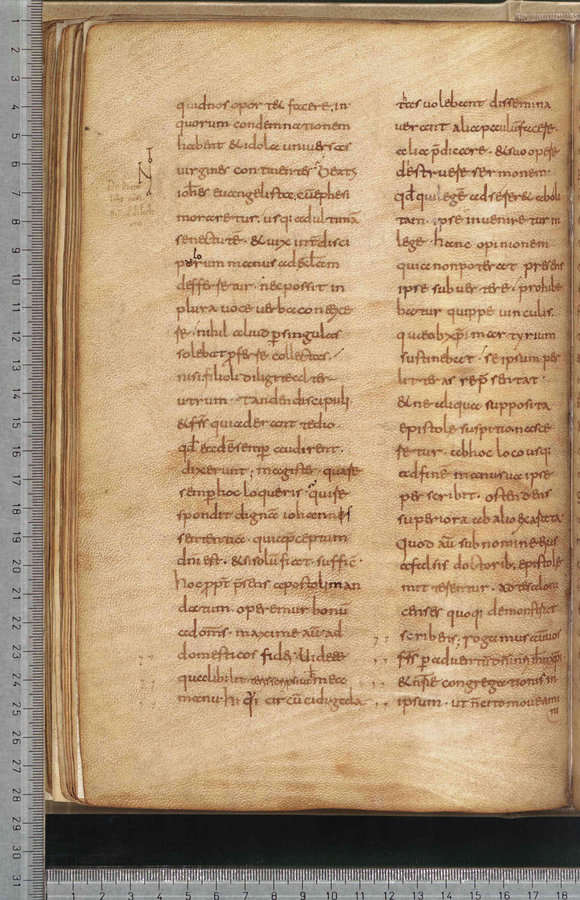 quid nos oportet facere, in
quorum condemnationem
habent & idola uniuersas
uirgines continentes. Beatus
ioh̅es euangelista, cu̅ ephesi
moraretur. usq; ad ultima̅
senectute̅. & uix int̅ disci
pulorum manus ad ecl̅am
defferretur. nec possit in
plura uoce uerba conexe
re. nihil aliud p̲ singulas
solebat p̲ferre collectas.
nisi. filioli diligite al ter
utrum. tandem discipuli
& fr̅s qui aderant tedio.
qd̅ eade̅ semp̲ audirent.
dixerunt; magister. quare
semp̲ hoc loqueris. qui re
spondit dignā iohannis
sententia. quia p̅ceptum
dn̅i est. & si solu̅ fiat. suffic̅
hoc ppt̅ p̅sens apostoli man
datum. operemur bonu̅
ad om̅s. maxime au̅ ad
domesticos fidei. Uidete
qualib; litt
manu. hi qi circu̅cidi gala
tas uolebant dissemina
uerant alia paulu̅ facere.
alia p̅dicare. & suo opere
destruere sermonem.
qd̅ qui lege̅ ad sere& aboli
tam. ipse inuenire tur in
lege. hanc opinionem
quia non poterat presens
ipse subuertere. prohibe
batur quippe uinculis.
quae ab xp̅i martyrium
sustinebat. se ipsum per
litteras rep̅sentat.
& ne aliqua supposita
epistole suspitio nasce
retur. ab hoc loco usq;
ad fine̅ manu sua ipse
perscribit. ostendens
superiora ab alio exarata
Quod au̅ sub nomine eius
a falsis doctorib; epistole
mitterentur. ad tesaloni
censes quoq; demonstrat
scribens; rogamus au̅ uos
fr̅s p̲ aduentu̅
& n̅re congregationis in
ipsum. ut n̅ cito moueami
ni